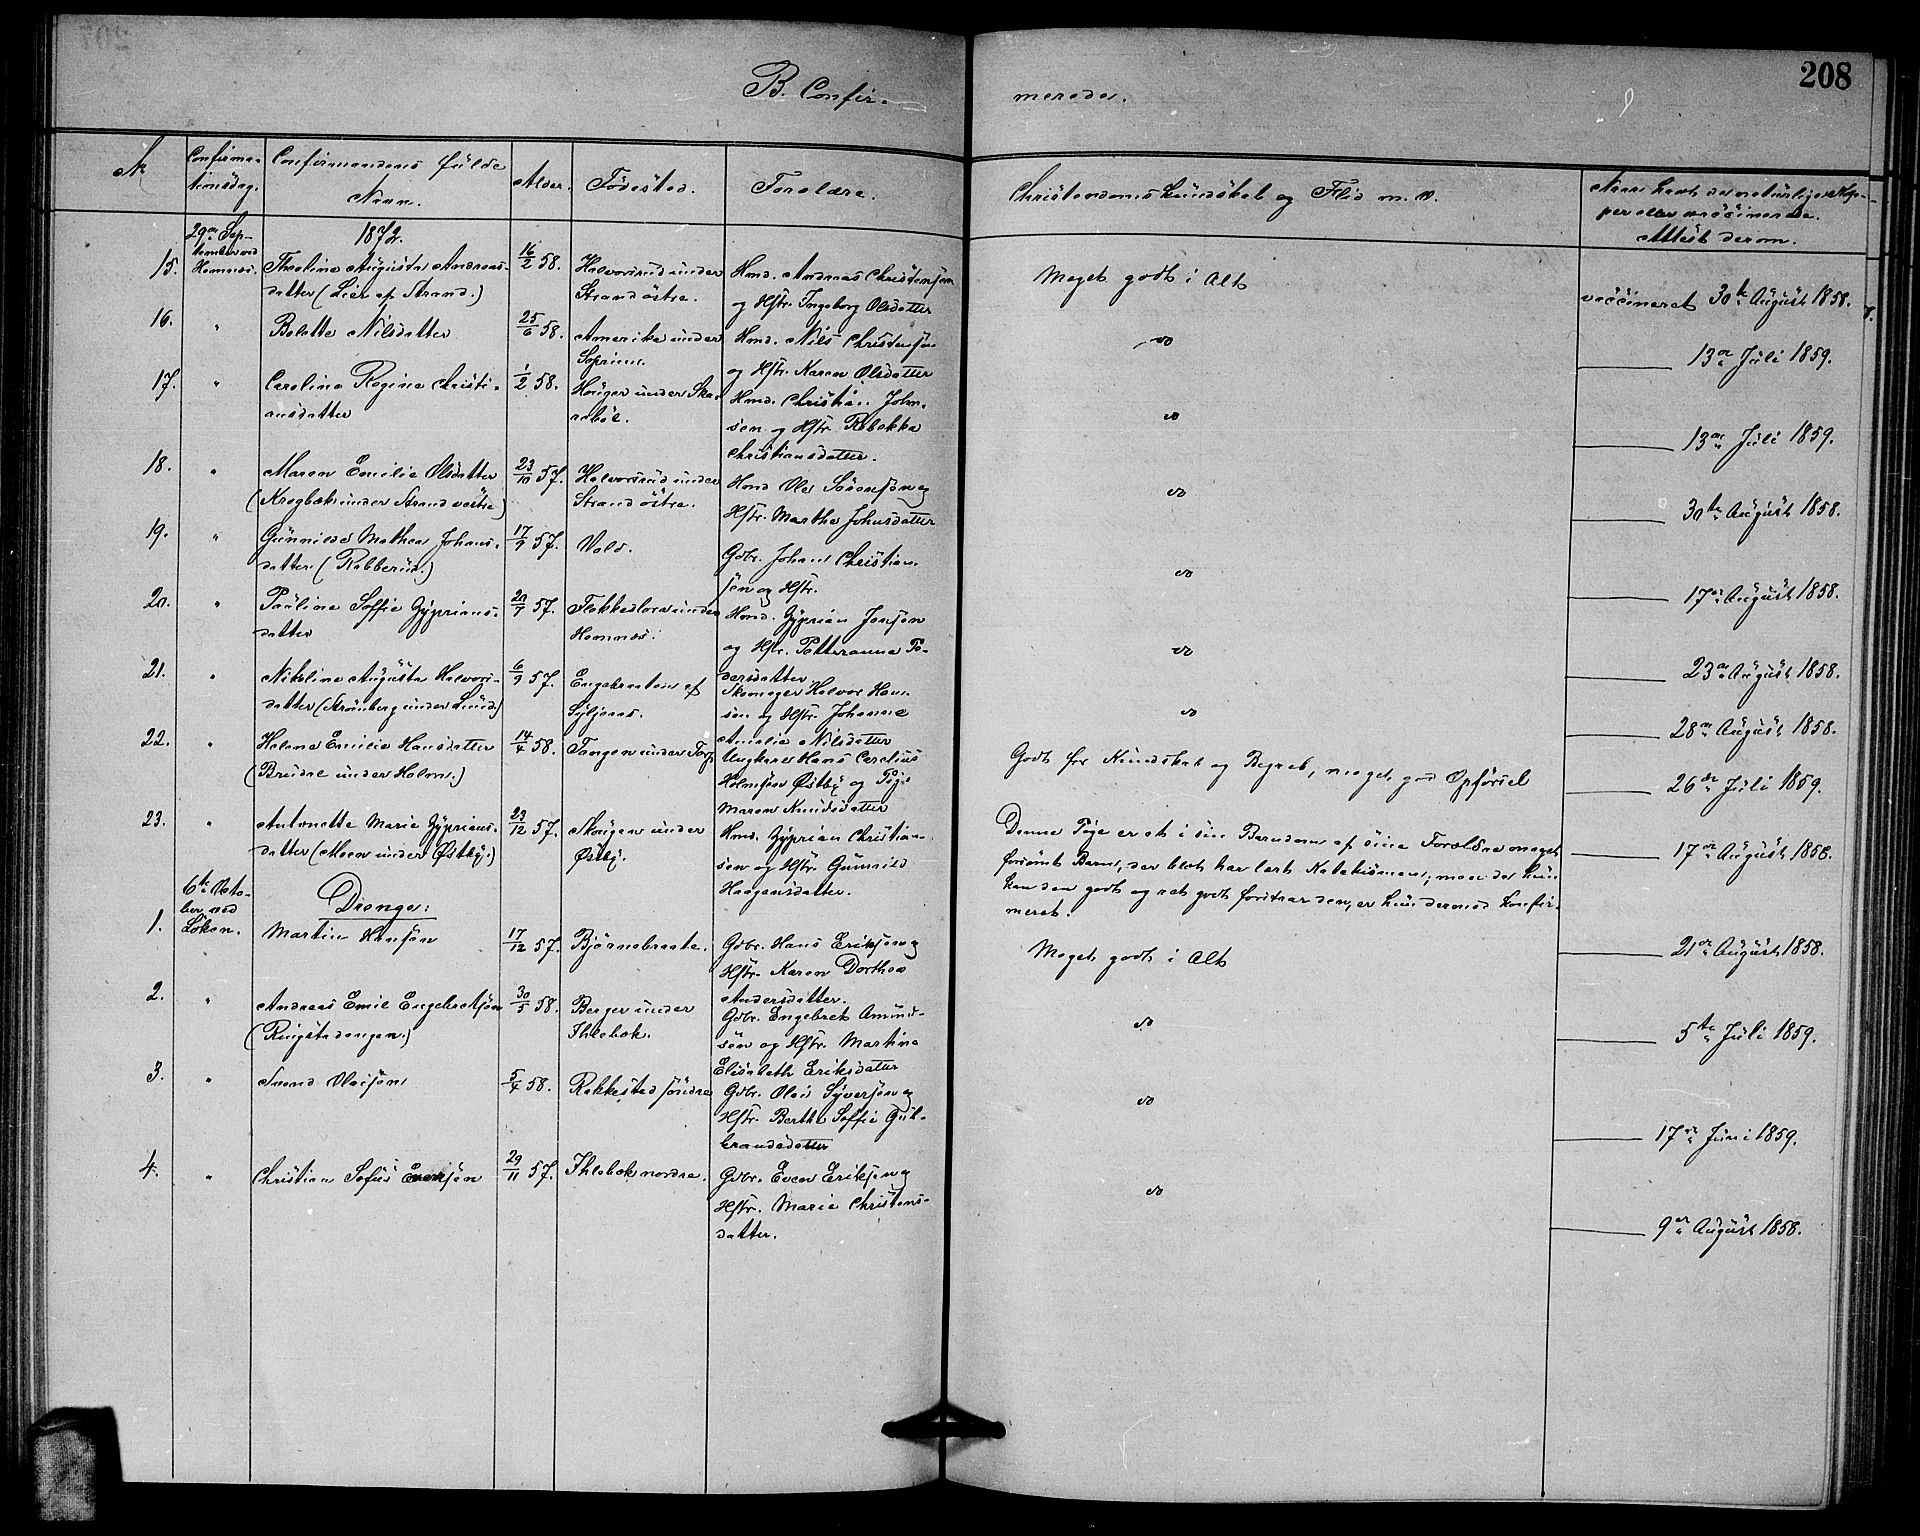 208
B. Confir-
merede.
No
Confirma-
tionsdag.
Confirmandens fulde
Navn.
Alder.
Fødested.
Forældre.
Christendomskundskab og Flid m. v.
Naar havt de naturlige Kop-
per eller vaccinerede.
Attest derom.
29de Sep-
tember ved
Hemnæs.
1872.
15.
Theoline Augusta Andreas-
datter (Lier af Strand.)
16/2 58.
Halvorsrud under
Strand østre.
Hmd. Andreas Christensen
og Hstr. Ingeborg Olsdatter
Meget godt i Alt
vaccineret 30te August 1858.
16.
"
Bolette Nilsdatter
25/6 58.
Amerika under
Hmd. Nils Christensøn
og Hstr. Karen Olsdatter
do
13de Juli 1859.
17.
"
Caroline Regine Christi-
ansdatter
1/2 58.
Houger under Ska-
nebøl.
Hmd. Christian John-
sen og Hstr. Rebekka
Christiansdatter.
do
13de Juli 1859.
18.
"
Maren Emilie Olsdatter
(Krogbæk under Strand vestre)
23/10 57.
Halvorsrud under
Strand østre.
Hmd Ole Sørensen og
Hstr. Marthe Johnsdatter
do
30te August 1858.
19.
"
Gunnild Mathea Johans-
datter (Rabberud.)
17/9 57.
Vold.
Gdbr. Johan Christian-
sen og Hstr.
do
17de August 1858.
20.
"
Pauline Soffie Zyprians-
datter
Hemnæs.
Hmd. Zyprian Jensen
og Hstr. Petteranna Pe-
dersdatter
do
23de August 1858.
21.
"
Nikoline Augusta Halvors-
datter (Strømberg under Lund)
6/9 57.
Engebraaten af
Skomager Halvor Han-
sen og Hstr. Johanne
Amalie Nilsdatter
do
28de August 1858.
22.
"
Helene Emilie Hansdatter
(Bredal under Holm.)
14/4 58.
Tangen under Torp
Ungkarl Hans Carelius
Holmsen Østby og Pige
Maren Knudsdatter
Godt for Kundskab og Begreb, meget god Opførsel
26de Juli 1859.
23.
"
Antonette Marie Zyprians-
datter (Moen under Østby.)
23/12 57.
Skougen under
Østby.
Hmd. Zyprian Christian-
sen og Hstr. Gunnild
Haagensdatter.
Denne Pige er et i sin Barndom af sine Forældre meget
forsømt Barn, der blot har lært Katekismen; men da hun
kan den godt og ret godt forstaar den, er hun dermed konfir-
meret.
17de August 1858.
6te Octo-
ber ved
Løken.
Drenge:
1.
Martin Hansen
17/12 57.
Bjørnebraate.
Gdbr. Hans Eriksen og
Hstr. Karen Dorthea
Andersdatter.
Meget godt i Alt
21de August 1858.
2.
"
Andreas Emil Engebretsøn
(Ringstadengen.)
30/5 58.
Berger under
Ihlebæk.
Gdbr. Engebret Amund-
sen og Hstr. Martine
Elisabeth Eriksdatter
do
5te Juli 1859.
3.
"
Svend Olaisen
5/4 58.
Rakkestad søndre
Gdbr. Olai Syversen og
Hstr. Berthe Soffie Gul-
brandsdatter
do
17de Juni 1859.
4.
"
Christian Sofus Evensen
29/11 57.
Ihlebæk nordre.
Gdbr. Even Eriksen og
Hstr. Marie Christens-
datter.
do
9de August 1858.